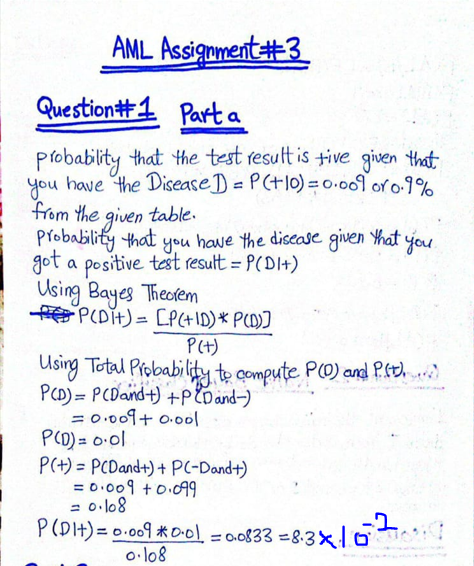 AML Assignment #3
Question#1 Part a
probability that the test result is +ive given that
you have the Disease D = P(+|D) = 0.009 or 0.9%
from the given table.
Probability that you have the disease given that you
got a positive test result = P(D|+)
Using Bayes Theorem
P(D|+) = [P(+|D) * P(D)]
P(+)
Using Total Probability to compute P(D) and P(+).
P(D) = P(Dand+) + P(Dand-)
= 0.009 + 0.001
P(D) = 0.01
P(+) = P(Dand+) + P(-Dand+)
= 0.009 + 0.099
= 0.108
P(D|+) = 0.009 * 0.01 = 0.0833 = 8.3 × 10^-2
0.108